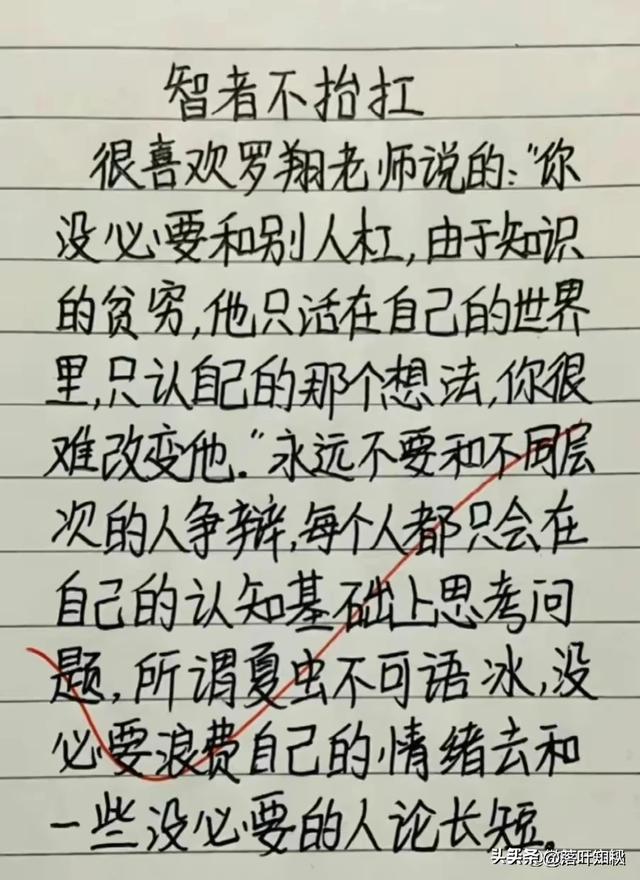 智者不抬扛
很喜欢罗翔老师说的:"你
没必要和别人杠,由于知识
的贫穷,他只活在自己的世界
里,只认自己的那个想法,你很
难改变他."永远不要和不同层
次的人争辩,每个人都只会在
自己的认知基础上思考问
题,所谓夏虫不可语冰,没
必要浪费自己的情绪去和
一些没必要的人论长短。
头条